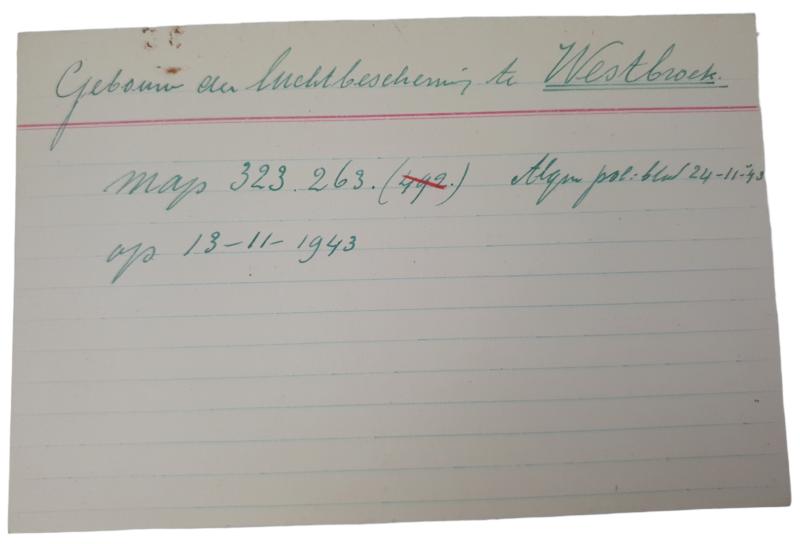 Gebouw der luchtbescherming te Westbroek.
map 323.263. (492.) Algm pol: blad 24-11-'43
op 13-11-1943